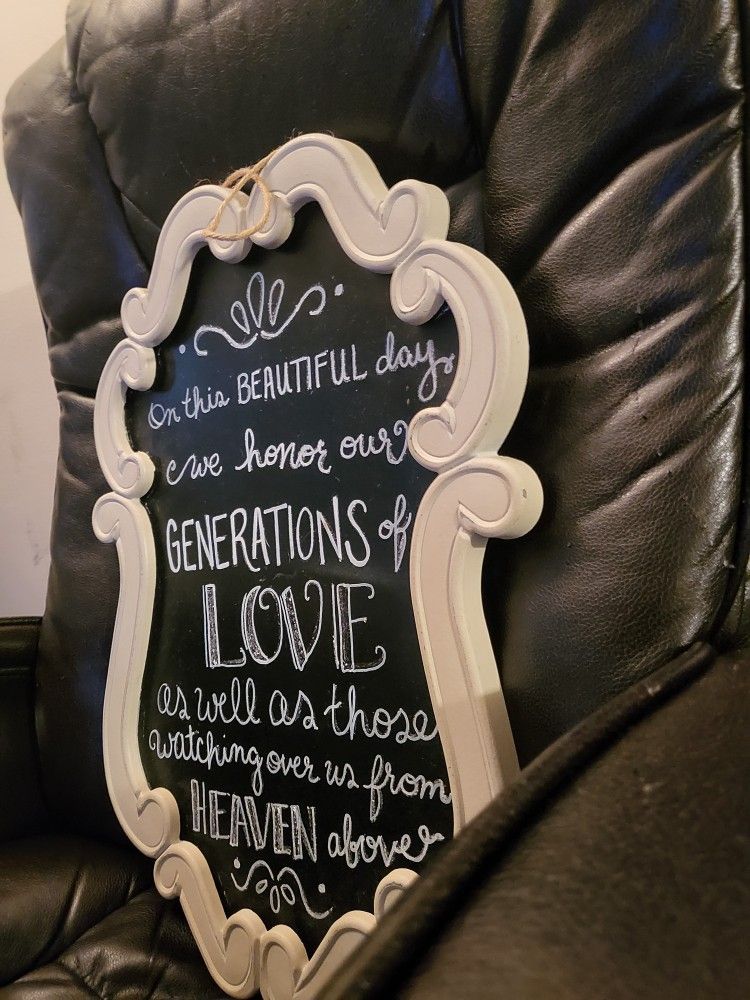 On this BEAUTIFUL day
we honor our
GENERATIONS of
LOVE
as well as those
watching over us from
HEAVEN above